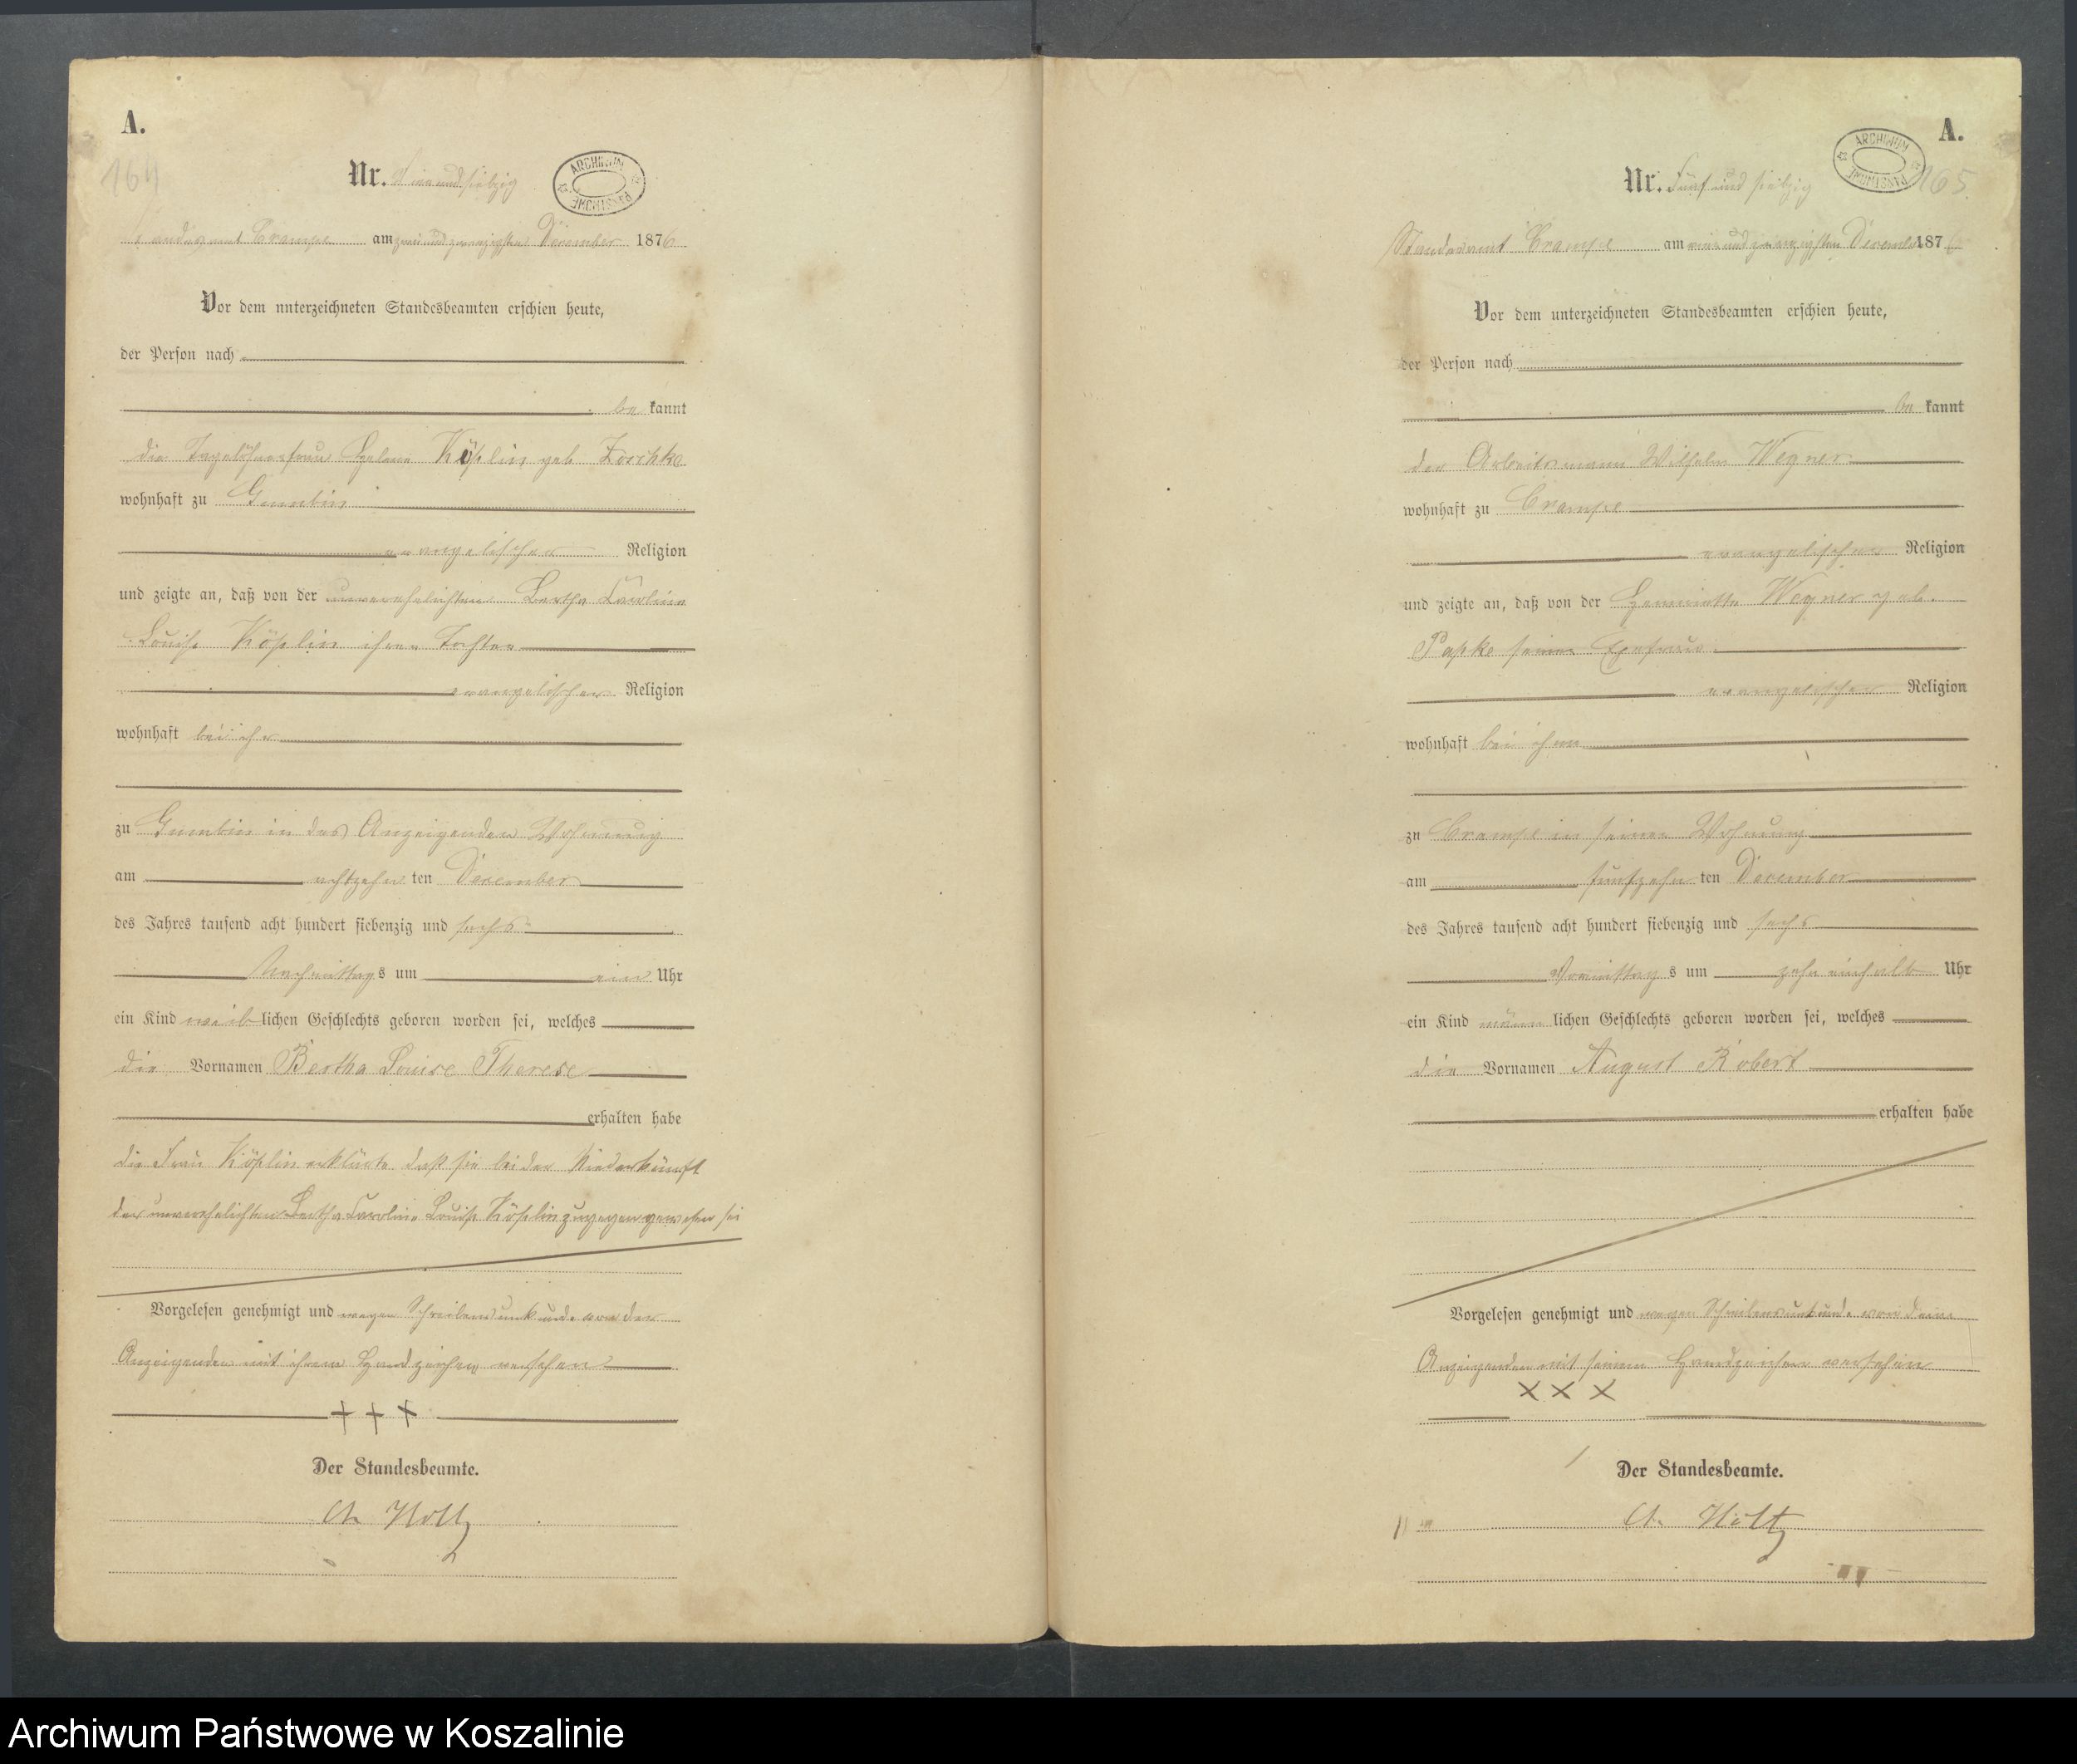 A.
164
Nr. Vier und siebzig
ARCHIWUM PAŃSTWOWE
Standesamt Crampe am zwei und zwanzigsten December 1876
Vor dem unterzeichneten Standesbeamten erschien heute,
der Person nach
be kannt
die Tagelöhnerfrau Helene Köplin geb Zoschke
wohnhaft zu Gumbin
evangelischer Religion
und zeigte an, daß von der unverehelichten Bertha Caroline
Louise Köplin ihrer Tochter
evangelischer Religion
wohnhaft bei ihr
zu Gumbin in der Anzeigenden Wohnung
am achtzehn ten December
des Jahres tausend acht hundert siebenzig und sechs
Nachmittags um ein Uhr
ein Kind weiblichen Geschlechts geboren worden sei, welches
die Vornamen Bertha Louise Therese
erhalten habe
die Frau Köplin erklärte daß sie bei der Niederkunft
der unverehelichten Bertha Caroline Louise Köplin zugegen gewesen sei
Vorgelesen genehmigt und wegen Schreibensunkunde von der
Anzeigenden mit ihrem Handzeichen versehen
+ + +
Der Standesbeamte.
Holtz
A.
165
Nr. Fünf und siebzig
ARCHIWUM PAŃSTWOWE
Standesamt Crampe am zwanzigsten December 187
Vor dem unterzeichneten Standesbeamten erschien heute,
der Person nach
be kannt
der Arbeitsmann Wilhelm Wegner
wohnhaft zu Crampe
evangelischer Religion
und zeigte an, daß von der Henriette Wegner geb.
Papke seiner Ehefrau
evangelischer Religion
wohnhaft bei ihm
zu Crampe in seiner Wohnung
am fünfzehn ten December
des Jahres tausend acht hundert siebenzig und sechs
Vormittags um zehn einhalb Uhr
ein Kind männ lichen Geschlechts geboren worden sei, welches
die Vornamen August Robert
erhalten habe
Vorgelesen genehmigt und wegen Schreibensunkunde von dem
Anzeigenden mit seinem Handzeichen versehen
x x x
Der Standesbeamte.
Holtz
Archiwum Państwowe w Koszalinie